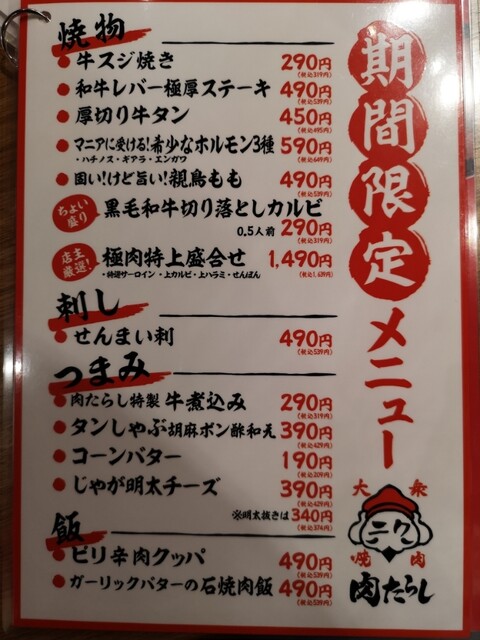 期間限定メニュー
焼物
牛スジ焼き 290円
(税込319円)
和牛レバー極厚ステーキ 490円
(税込539円)
厚切り牛タン 450円
(税込495円)
マニアに受ける!希少なホルモン3種 590円
・ハチノス・ギアラ・エンガワ (税込649円)
固い!けど旨い!親鳥もも 490円
(税込539円)
ちょい盛り 黒毛和牛切り落としカルビ
0.5人前 290円
(税込319円)
店主厳選! 極肉特上盛合せ 1,490円
・特選サーロイン・上カルビ・上ハラミ・せんぽん (税込1,639円)
刺し
せんまい刺 490円
(税込539円)
つまみ
肉たらし特製 牛煮込み 290円
(税込319円)
タンしゃぶ胡麻ポン酢和え 390円
(税込429円)
コーンバター 190円
(税込209円)
じゃが明太チーズ 390円
(税込429円)
※明太抜きは 340円
(税込374円)
飯
ピリ辛肉クッパ 490円
(税込539円)
ガーリックバターの石焼肉飯 490円
(税込539円)
大衆
焼肉
肉たらし